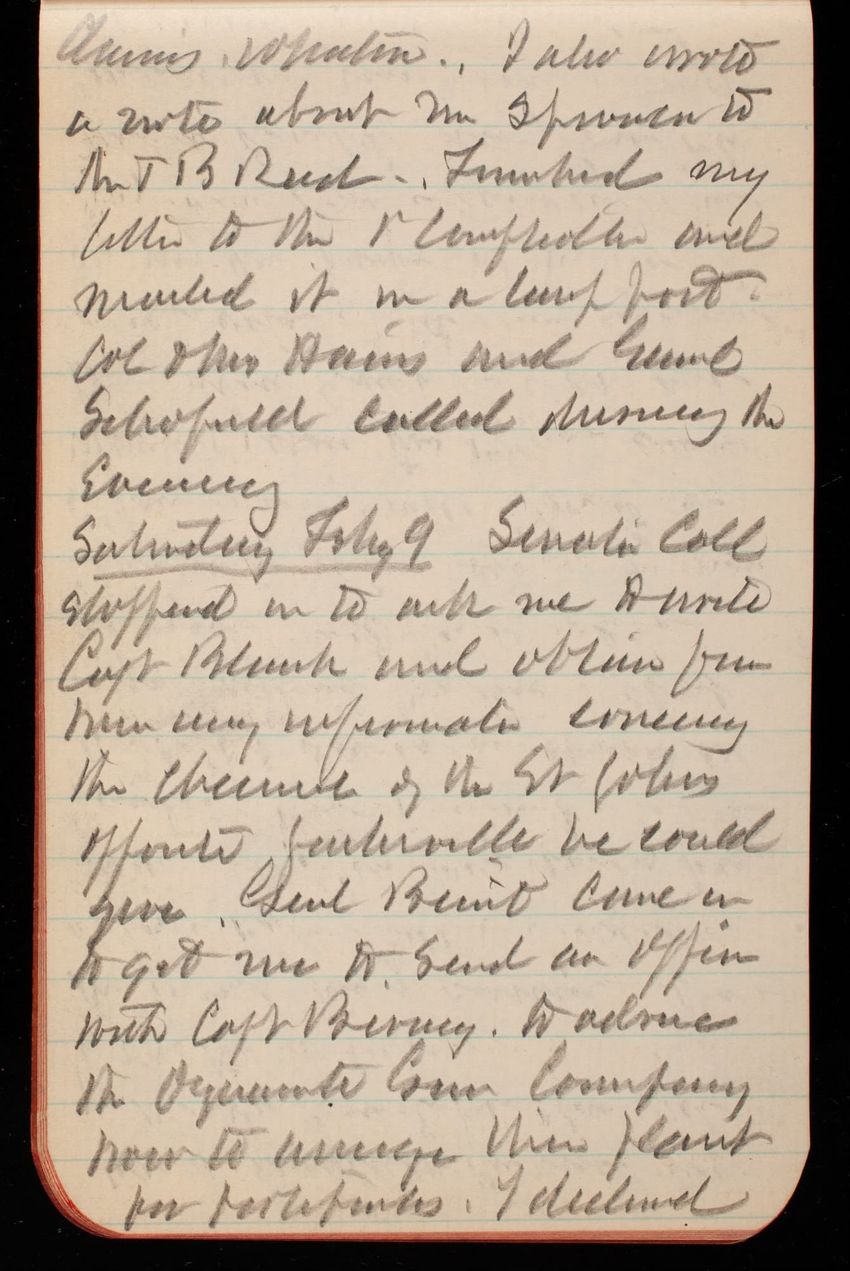 I also wrote
a note about Mr to
the T B Reed. Finished my
letter to the 1st Comptroller and
mailed it in a lamp post.
Col & Mrs Hains and Genl
Schofield called during the
Evening
Saturday Feby 9 Senator Call
stopped in to ask me to write
Capt Black and obtain from
him any information concerning
the channel of the St Johns
opposite Jacksonville he could
give. Genl Benét came in
to get me to send an officer
with Capt Birney. to advise
the Dynamite Gun Company
how to arrange their plant
for I declined